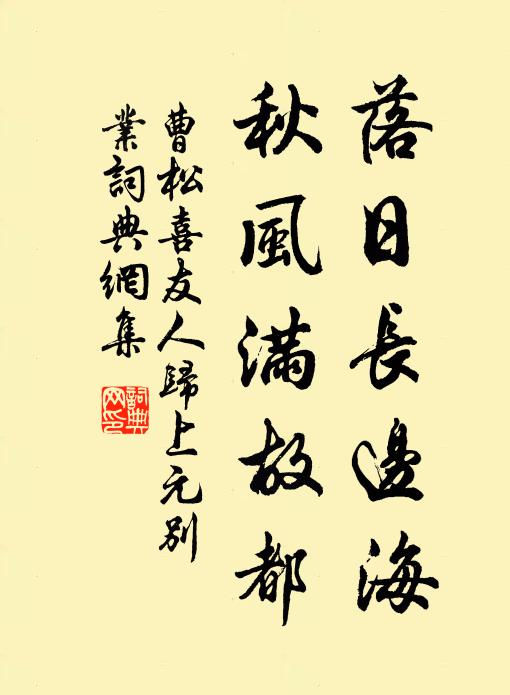 落日長邊海
秋風滿故都
曹松喜友人歸上元別
業詞典網集
詞典
网印